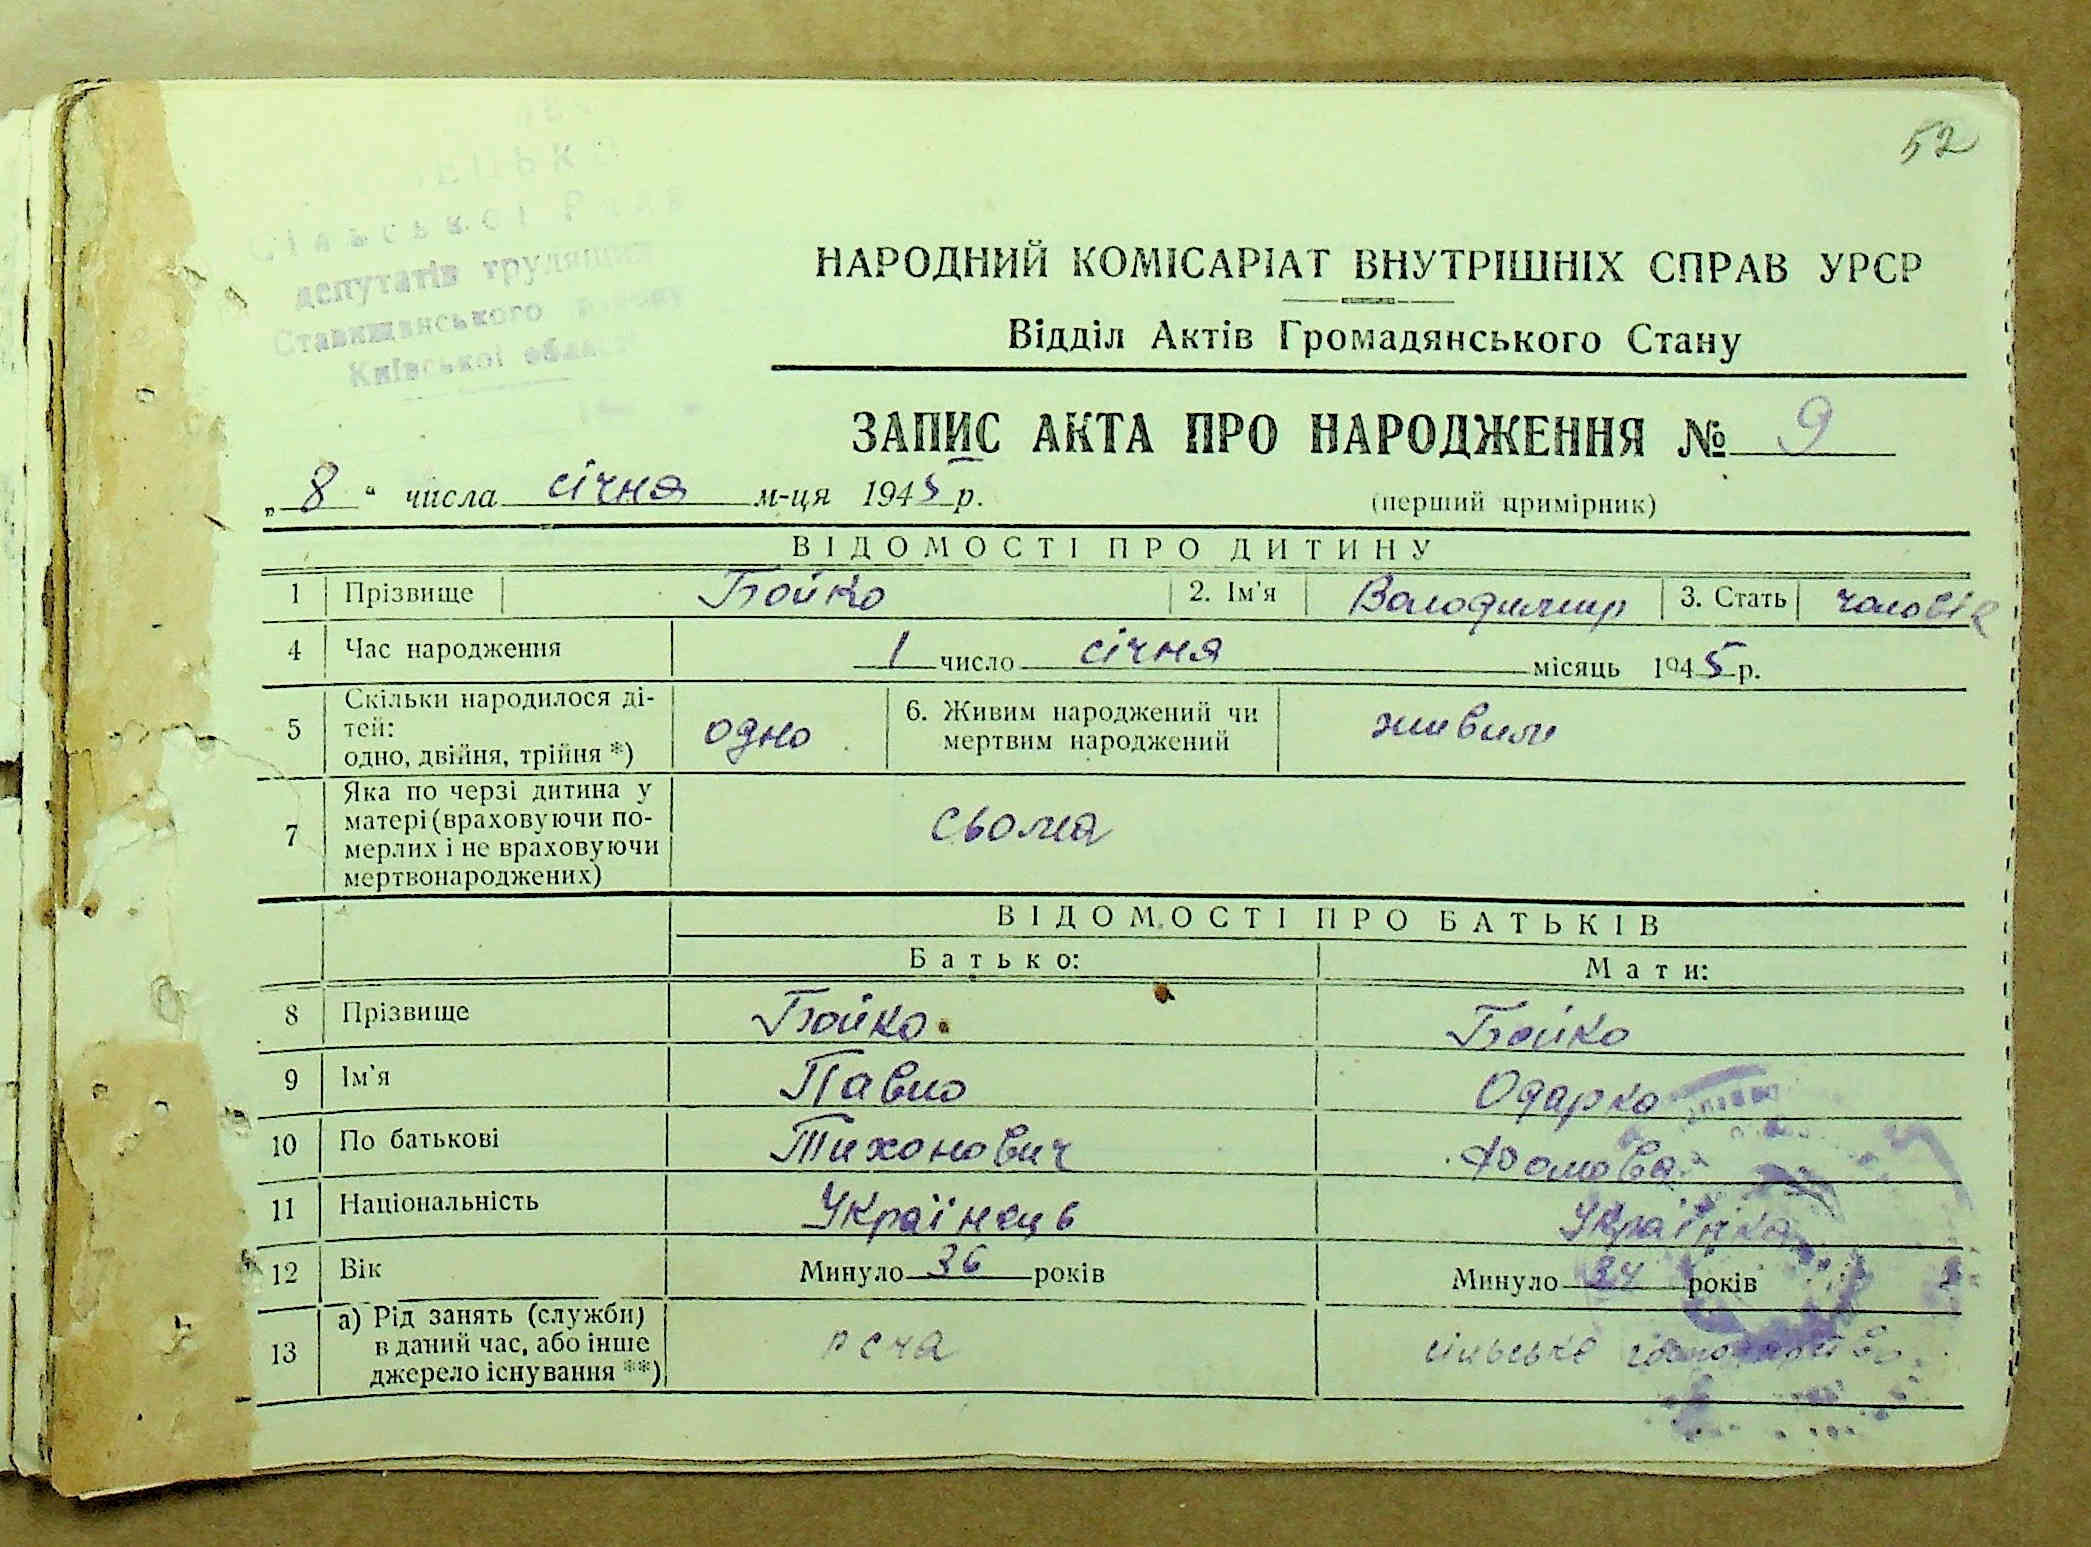 52
Сільської Рад
депутатів трудящих
Ставищанського району
Київської області
НАРОДНИЙ КОМІСАРІАТ ВНУТРІШНІХ СПРАВ УРСР
Відділ Актів Громадянського Стану
ЗАПИС АКТА ПРО НАРОДЖЕННЯ № 9
„ 8 “ числа січня м-ця 1945 р.
(перший примірник)
ВІДОМОСТІ ПРО ДИТИНУ
1 Прізвище Бойко 2. Ім'я Володимир 3. Стать чоловіч
4 Час народження 1 число січня місяць 1945 р.
5 Скільки народилося ді-
тей:
одно, двійня, трійня *) одно
6. Живим народжений чи
мертвим народжений живим
7 Яка по черзі дитина у
матері (враховуючи по-
мерлих і не враховуючи
мертвонароджених) сьома
ВІДОМОСТІ ПРО БАТЬКІВ
Батько: Мати:
8 Прізвище Бойко Бойко
9 Ім'я Павло Одарка
10 По батькові Тихонович Фомовна
11 Національність Українець Українка
12 Вік Минуло 36 років Минуло 34 років
13 а) Рід занять (служби)
в даний час, або інше
джерело існування **) РСЧА сільське господарство